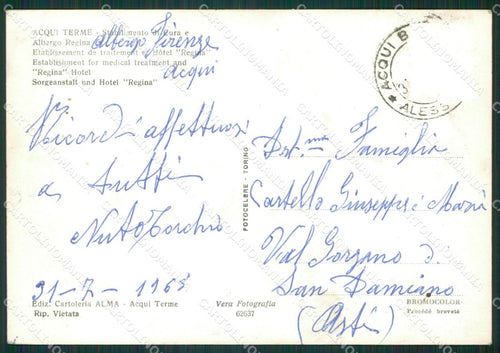 ACQUI TERME - Stabilimento di Cura e
Albergo Regina
Etablissement de traitement et Hôtel "Regina"
Establishment for medical treatment and
"Regina" Hotel
Sorgeanstalt und Hotel "Regina"
Albergo Firenze
Acqui
Ricordi affettuosi
a tutti
Nuto Torchio
31-7-1965
Ediz. Cartoleria ALMA - Acqui Terme
Rip. Vietata
FOTOCELERE - TORINO
Vera Fotografia
62637
ACQUI
ALESS
Dist.ma Famiglia
Castello Giuseppe e Maria
Val Gorzano di
San Damiano
(Asti)
BROMOCOLOR
Procédé breveté
CARTOLINOMANIA